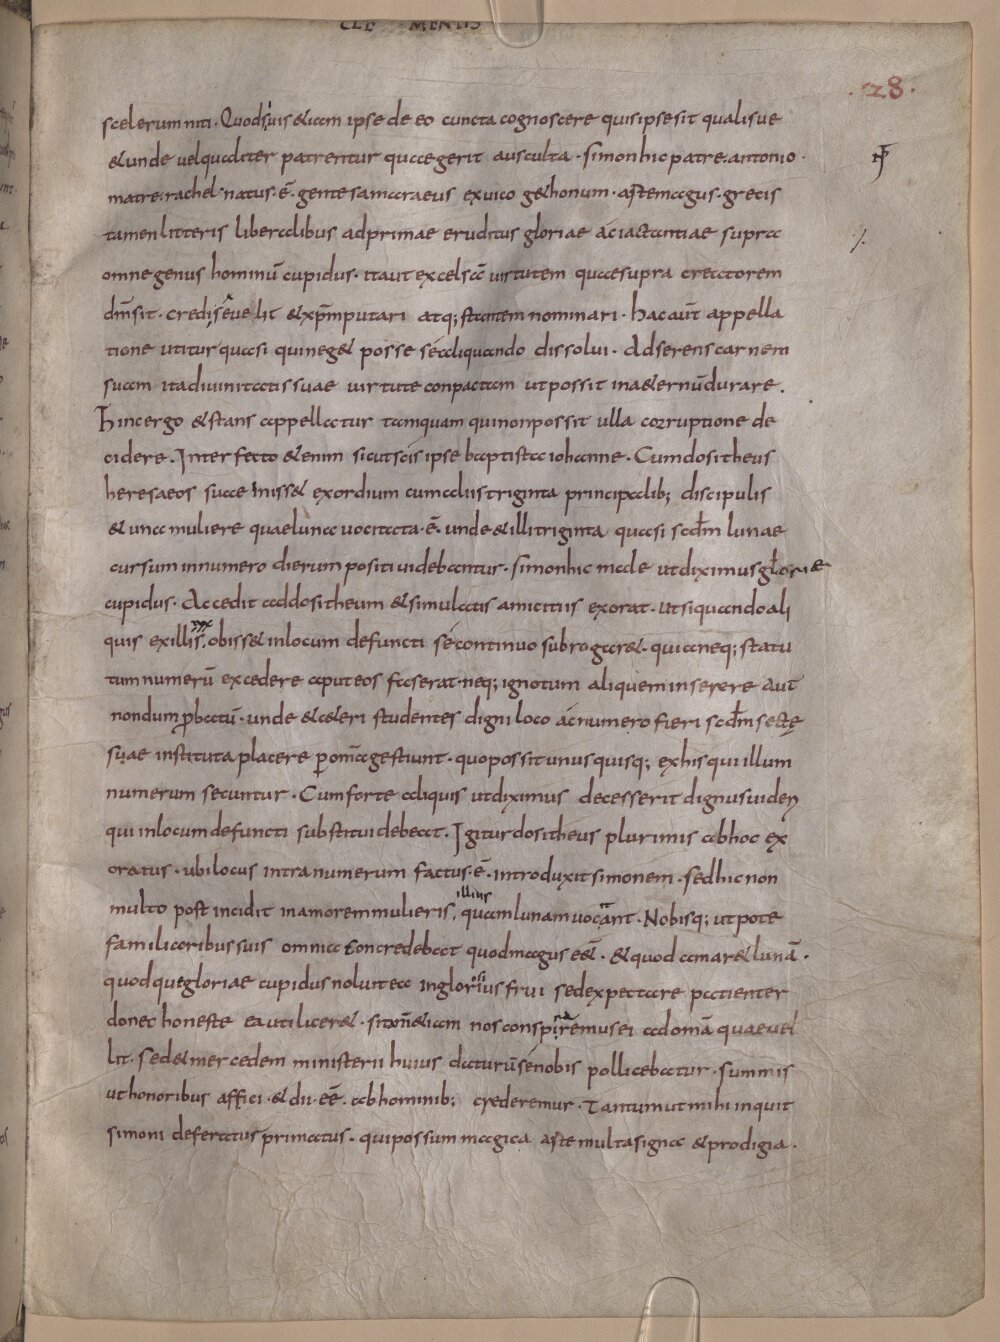 CLE MENTIS
.28.
scelerum niti. Quodsiuis &iam ipse de eo cuncta cognoscere quis ipse sit qualisue
&unde uel qualiter patrentur quae gerit ausculta. simon hic patre antonio.
matre rachel natus .ē. gente samaraeus ex uico gethonum. arte magus. grecis
tamen litteris liberalibus adprimae eruditus gloriae ac iactantiae supra
omne genus hominū cupidus. ita ut excelsā uirtutem quae supra creatorem
dm̄ sit. credi se uelit &xp̄m putari atq; stantem nominari. hac aut̄ appella
tione utitur quasi qui neg& posse se aliquando dissolui. Adserens carnem
suam ita diuinitatis suae uirtute conpactam ut possit in a&ernū durare.
hinc ergo &stans appellatur tamquam qui non possit ulla corruptione de
cidere. Interfecto &enim sicut scis ipse baptista iohanne. Cum dositheus
heresaeos suae iniss& exordium cum aliis triginta principalib; discipulis
&una muliere quae luna uocitata .ē. unde &illi triginta quasi scdm̄ lunae
cursum in numero dierum positi uidebantur. simon hic male ut diximus gloriae
cupidus. Accedit ad dositheum &simulatis amicitiis exorat. ut si quando ali
quis ex illis xxx obiss& in locum defuncti se continuo subrogar&. quia neq; statu
tum numerū excedere aput eos fas erat. neq; ignotum aliquem inserere aut
nondum ꝓbatū. unde &c&eri studentes digni loco ac numero fieri scdm̄ sectę
suae instituta placere ꝑ omnia gestiunt. quo possit unusquisq; ex his qui illum
numerum secuntur. Cum forte aliquis ut diximus decesserit dignus uideri
qui in locum defuncti substitui debeat. Igitur dositheus plurimis ab hoc ex
oratus. ubi locus intra numerum factus .ē. introduxit simonem. sed hic non
multo post incidit in amorem mulieris illius quam lunam uocant. Nobisq; utpote
familiaribus suis omnia concredebat quod magus eē&. &quod amar& lunā.
quodque gloriae cupidus nolut ea inglorius frui sed expectare patienter
donec honeste ea uti licer&. si tam̄ &iam nos conspiremus ei ad om̄a quae uel
lit. sed &mercedem ministerii huius daturū se nobis pollicebatur. summis
ut honoribus affici. &dii eē. ab hominib; crederemur. Tantum ut mihi inquit
simoni deferatus primatus. qui possum magica arte multa signa &prodigia.